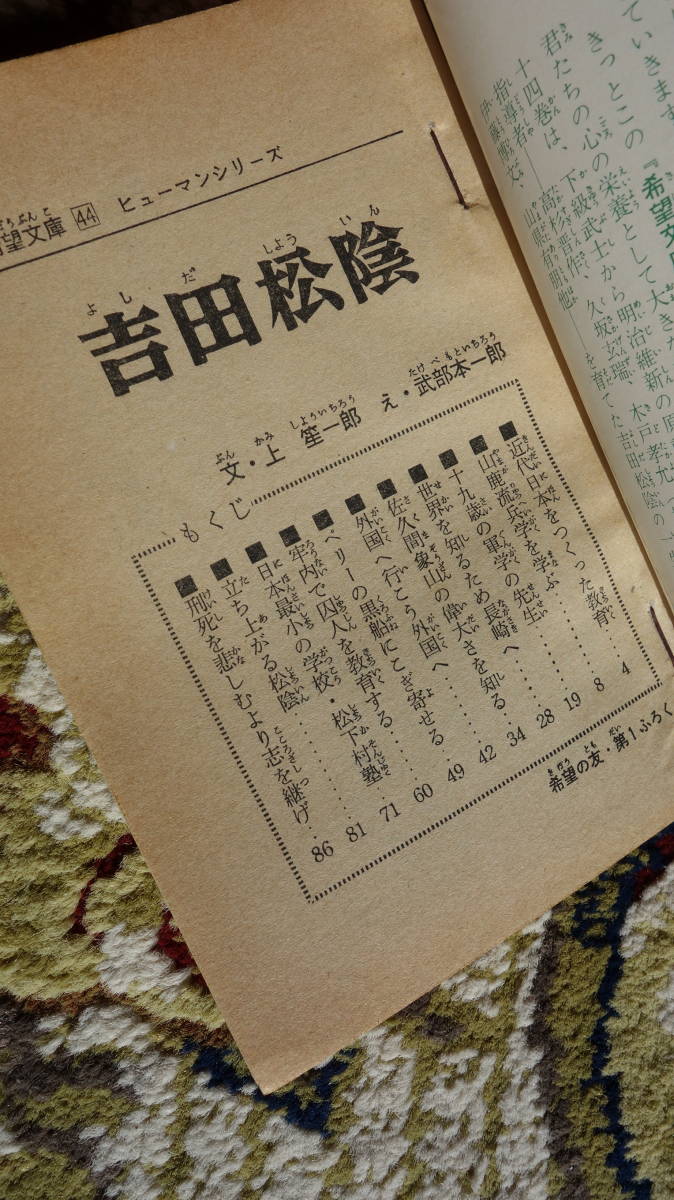 望文庫 44 ヒューマンシリーズ
吉田松陰
よしだしよういん
文・上 笙一郎 え・武部本一郎
ぶん かみ しよういちろう たけべもといちろう
もくじ
■近代日本をつくった教育……4
■山鹿流兵学を学ぶ……8
■十九歳の軍学の先生……19
■世界を知るため長崎へ……28
■佐久間象山の偉大さを知る……34
■外国へ行こう外国へ……42
■ペリーの黒船にこぎ寄せる……49
■牢内で囚人を教育する……60
■日本最小の学校・松下村塾……71
■立ち上がる松陰……81
■刑死を悲しむより志を継げ……86
希望の友・第1ふろく
きぼう とも だい
ていきます。
きっとこの『希望文
君たちの心の栄養として大きな
十四巻は、下級武士から明治維新の原
指導者――高杉晋作、久坂玄瑞、木戸孝允、
伊藤博文、山県有朋他――を育てた吉田松陰の